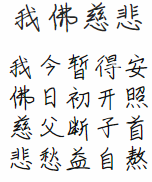 我佛慈悲
我今暂得安
佛日初开照
慈父断子首
悲愁益自熬